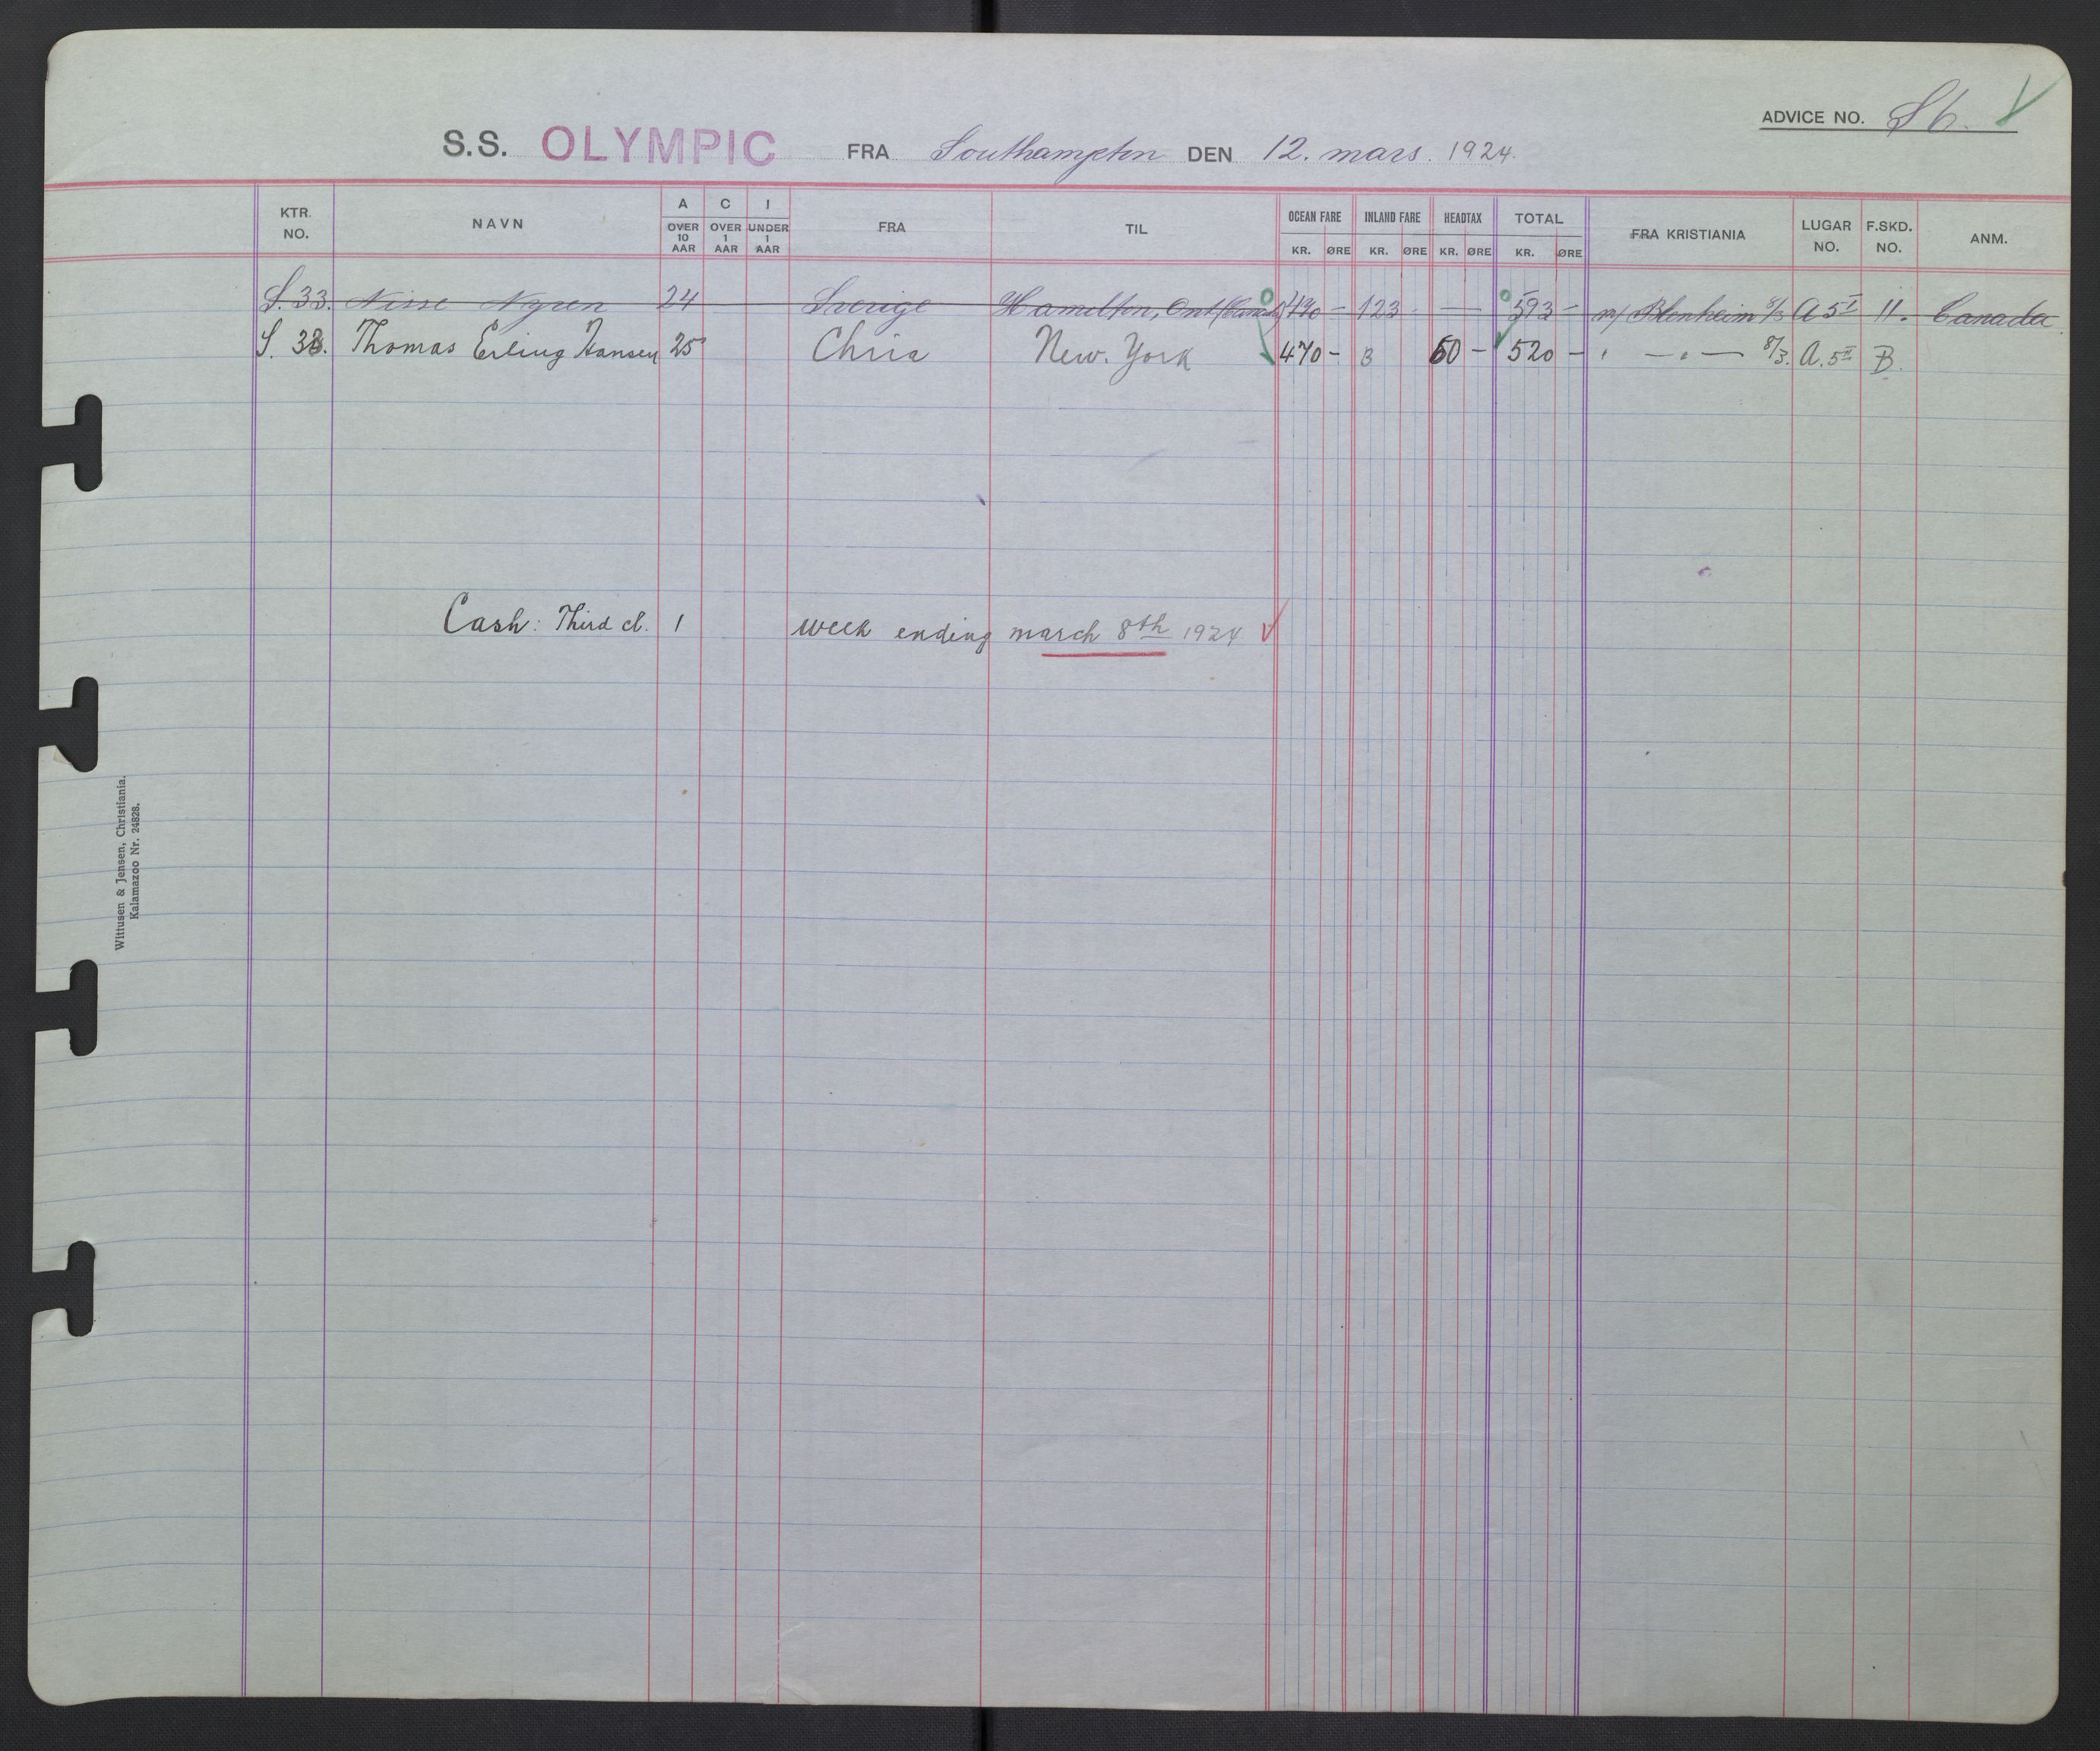 ADVICE NO. S 6.
S.S. OLYMPIC FRA Southampton DEN 12. mars. 1924.
KTR. NO. NAVN A OVER 10 AAR C OVER 1 AAR I UNDER 1 AAR FRA TIL OCEAN FARE KR. ØRE INLAND FARE KR. ØRE HEADTAX KR. ØRE TOTAL KR. ØRE FRA KRISTIANIA LUGAR NO. F.SKD. NO. ANM.
S. 33. Nisse Nyren 24 Sverige Hamilton, Ont 123 - — 593 - m/ Blenheim 8/3 A 5 I 11. Canada
S. 38. Thomas Erling Hansen 25 Chria New. York 470 - 50 - 520 - " — " — 8/3. A. 5 II B.
Cash: Third cl. 1 week ending march 8th 1924
Wittusen & Jensen, Christiania.
Kalamazoo Nr. 24828.